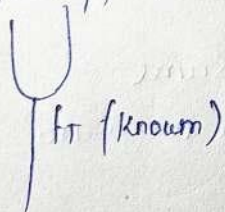 fT (Known)